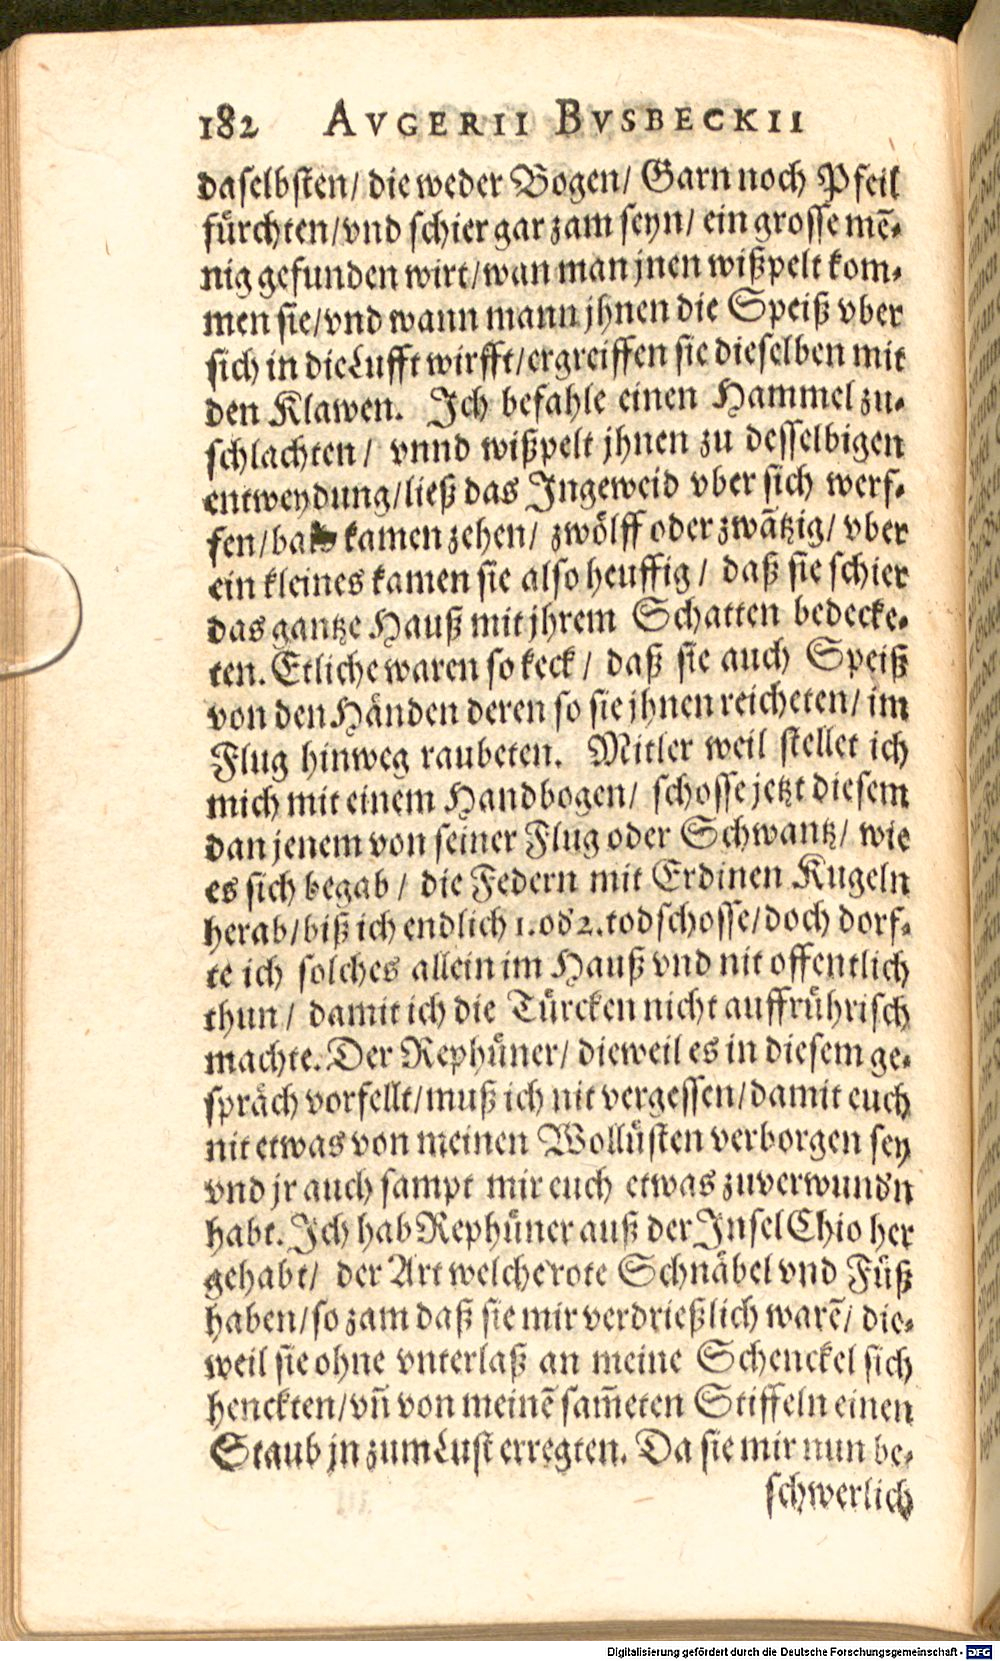 182 AVGERII BVSBECKII
daselbsten/ die weder Bogen/ Garn noch Pfeil
fürchten/vnd schier gar zam seyn/ ein grosse mē-
nig gefunden wirt/wan man jnen wißpelt kom-
men sie/vnd wann mann jhnen die Speiß vber
sich in die Lufft wirfft/ergreiffen sie dieselben mit
den Klawen. Ich befahle einen Hammel zu-
schlachten/ vnnd wißpelt jhnen zu desselbigen
entweydung/ließ das Ingeweid vber sich werf-
fen/bald kamen zehen/ zwölff oder zwātzig/ vber
ein kleines kamen sie also heuffig/ daß sie schier
das gantze Hauß mit jhrem Schatten bedecke-
ten. Etliche waren so keck/ daß sie auch Speiß
von den Händen deren so sie jhnen reicheten/ im
Flug hinweg raubeten. Mitler weil stellet ich
mich mit einem Handbogen/ schosse jetzt diesem
dan jenem von seiner Flug oder Schwantz/ wie
es sich begab/ die Federn mit Erdinen Kugeln
herab/biß ich endlich 1. od 2. tod schosse/doch dorf-
te ich solches allein im Hauß vnd nit offentlich
thun/ damit ich die Türcken nicht auffrührisch
machte. Der Rephüner/ dieweil es in diesem ge-
spräch vorfellt/muß ich nit vergessen/damit euch
nit etwas von meinen Wollüsten verborgen sey
vnd jr auch sampt mir euch etwas zuverwundn
habt. Ich hab Rephüner auß der Insel Chio her
gehabt/ der Art welche rote Schnäbel vnd Füß
haben/so zam daß sie mir verdrießlich warē/ die-
weil sie ohne vnterlaß an meine Schenckel sich
henckten/vñ von meinē sam̄eten Stiffeln einen
Staub jn zum Lust erregten. Da sie mir nun be-
schwerlich
Digitalisierung gefördert durch die Deutsche Forschungsgemeinschaft - DFG